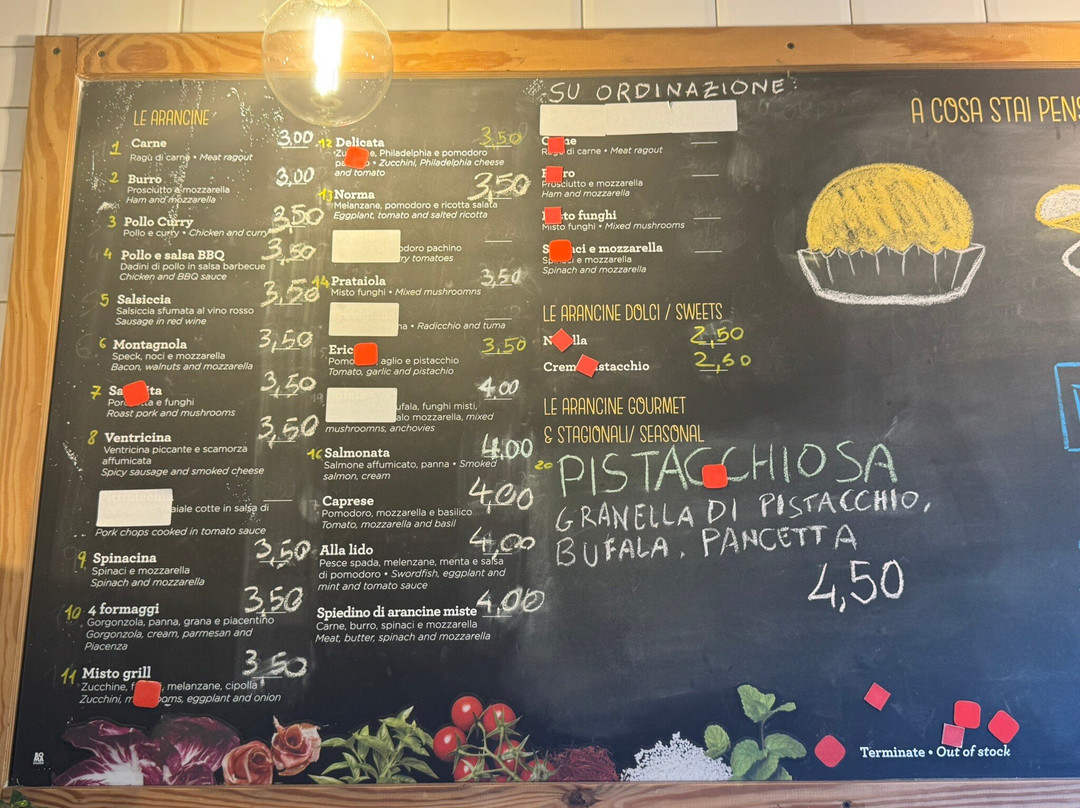 LE ARANCINE
1 Carne 3,00
Ragù di carne • Meat ragout
2 Burro 3,00
Prosciutto e mozzarella
Ham and mozzarella
3 Pollo Curry 3,50
Pollo e curry • Chicken and curry
4 Pollo e salsa BBQ 3,50
Dadini di pollo in salsa barbecue
Chicken and BBQ sauce
5 Salsiccia 3,50
Salsiccia sfumata al vino rosso
Sausage in red wine
6 Montagnola 3,50
Speck, noci e mozzarella
Bacon, walnuts and mozzarella
7 3,50
e funghi
Roast pork and mushrooms
8 Ventricina 3,50
Ventricina piccante e scamorza
affumicata
Spicy sausage and smoked cheese
cotte in salsa di
Pork chops cooked in tomato sauce
9 Spinacina 3,50
Spinaci e mozzarella
Spinach and mozzarella
10 4 formaggi 3,50
Gorgonzola, panna, grana e piacentino
Gorgonzola, cream, parmesan and
Piacenza
11 Misto grill 3,50
Zucchine, melanzane, cipolla
Zucchini, eggplant and onion
12 Delicata 3,50
Philadelphia e pomodoro
• Zucchini, Philadelphia cheese
and tomato
13 Norma 3,50
Melanzane, pomodoro e ricotta salata
Eggplant, tomato and salted ricotta
pachino
tomatoes
14 Prataiola 3,50
Misto funghi • Mixed mushroomns
• Radicchio and tuma
3,50
aglio e pistacchio
Tomato, garlic and pistachio
4,00
funghi misti,
mozzarella, mixed
mushroomns, anchovies
16 Salmonata 4,00
Salmone affumicato, panna • Smoked
salmon, cream
Caprese 4,00
Pomodoro, mozzarella e basilico
Tomato, mozzarella and basil
Alla lido 4,00
Pesce spada, melenzane, menta e salsa
di pomodoro • Swordfish, eggplant and
mint and tomato sauce
Spiedino di arancine miste 4,00
Carne, burro, spinaci e mozzarella
Meat, butter, spinach and mozzarella
SU ORDINAZIONE
di carne • Meat ragout
Prosciutto e mozzarella
Ham and mozzarella
funghi
Misto funghi • Mixed mushrooms
e mozzarella
e mozzarella
Spinach and mozzarella
LE ARANCINE DOLCI / SWEETS
2,50
2,50
LE ARANCINE GOURMET
& STAGIONALI/ SEASONAL
20 PISTACCHIOSA
GRANELLA DI PISTACCHIO,
BUFALA, PANCETTA
4,50
A COSA STAI
Terminate • Out of stock